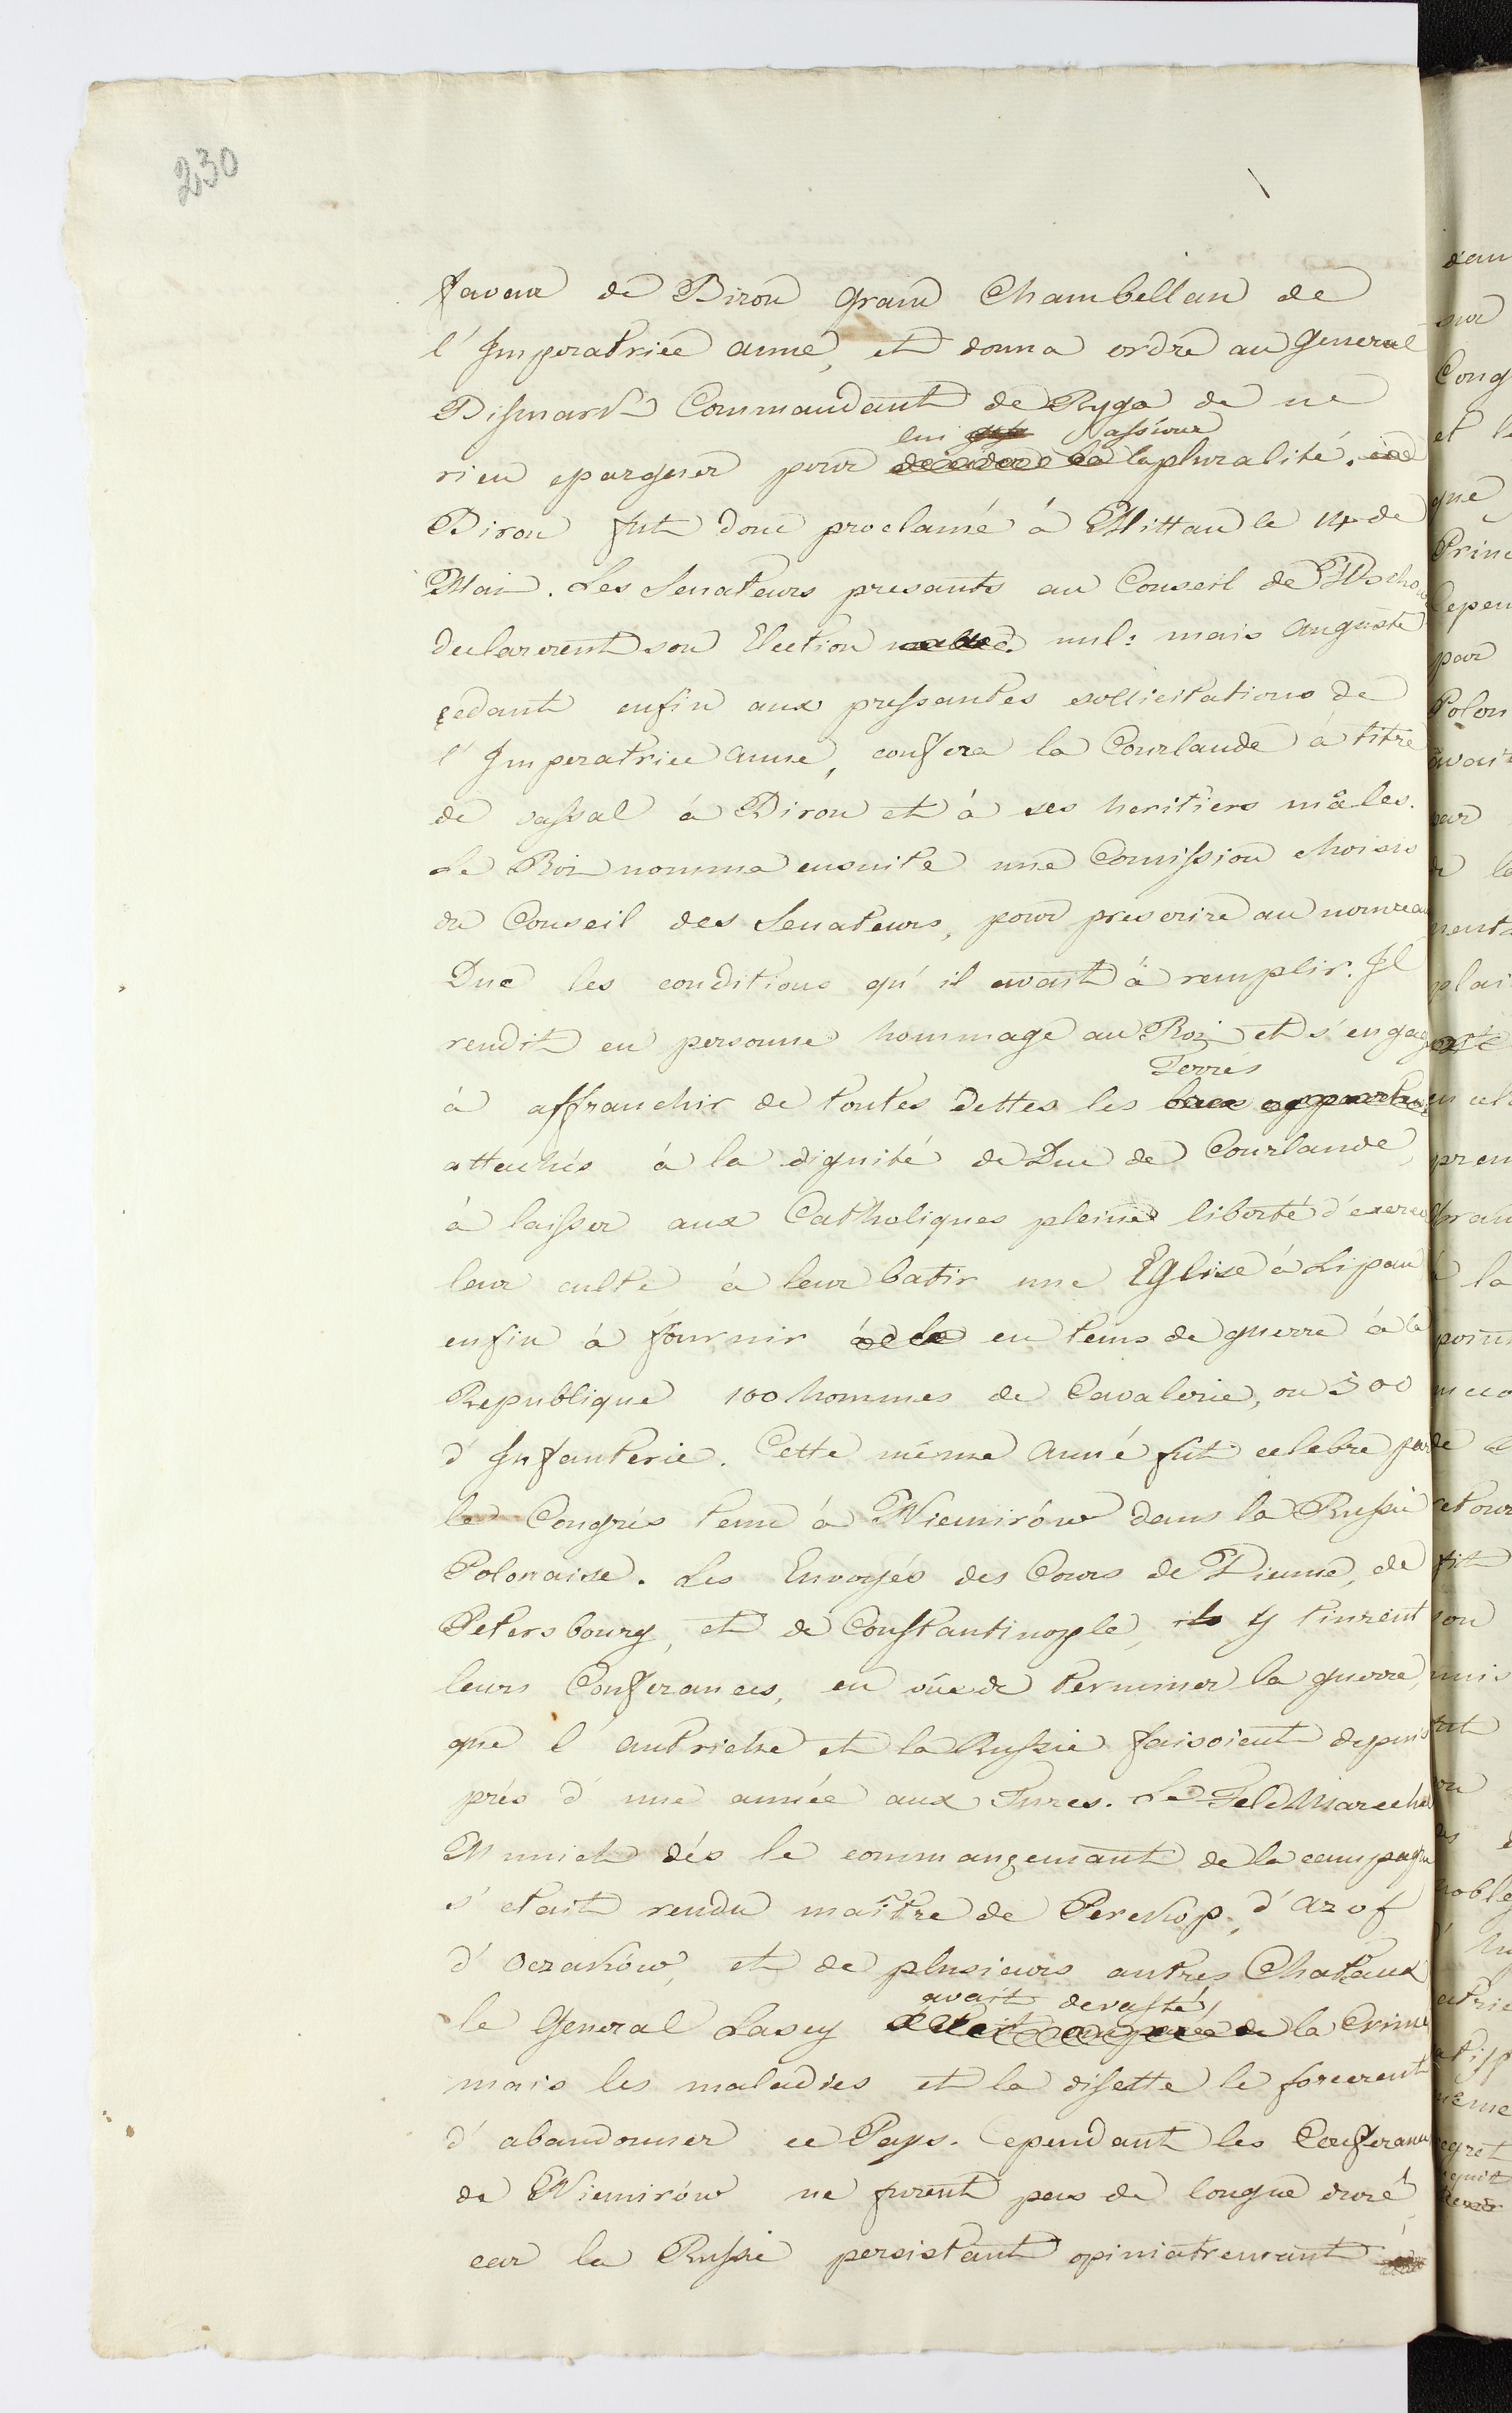 230
faveur de Biron Grand Chambellan de
l'Imperatrice Anne, et donna ordre au General
Bismark Commandant de Ryga de ne
lui assurer
rien epargner pour la pluralité.
Biron fut donc proclamé à Mittau le 14 de
Mai. Les Senateurs presants au Conseil de Wscho
declarerent son Election nul: mais Auguste
cedant enfin aux pressantes sollicitations de
l'Imperatrice Anne, confera la Courlande à titre
de vassal à Biron et à ses heritiers mâles.
Le Roi nomma ensuite une Comission choisie
du Conseil des Senateurs, pour prescrire au nouveau
Duc les conditions qu'il avait à remplir. Il
rendit en personne hommage au Roi et s'engag
Terres
à affranchir de toutes dettes les
attachés à la dignité de Duc de Courlande,
à laisser aux Catholiques pleine liberté d'exerce
leur culte à leur batir une Eglise à Lipau
enfin à fournir en tems de guerre à la
Republique 100 hommes de Cavalerie, ou 500
d'Infanterie. Cette même Anné fut celebre par
le Congrés tenu à Niemirów dans la Russie
Polonaise. Les Envoyés des Cours de Vienne, de
Petersbourg, et de Constantinople, y tinrent
leurs Conferances, en vüe de terminer la guerre,
que l'Autriche et la Russie faisoient depuis
prés d'une année aux Turcs. Le Feld Marechal
Munich dés le commançemant de la campagne
s'etait rendu maître de Perekop, d'Azof
d'Oczaków, et de plusieurs autres Chataux
avait devasté,
le General Lascy la Crimé
mais les maladies et la disette le forcerent
d'abandonner ce Pays. Cependant les Conferances
de Niemirów ne furent pas de longue duré,
car la Russie persistant opiniatremant